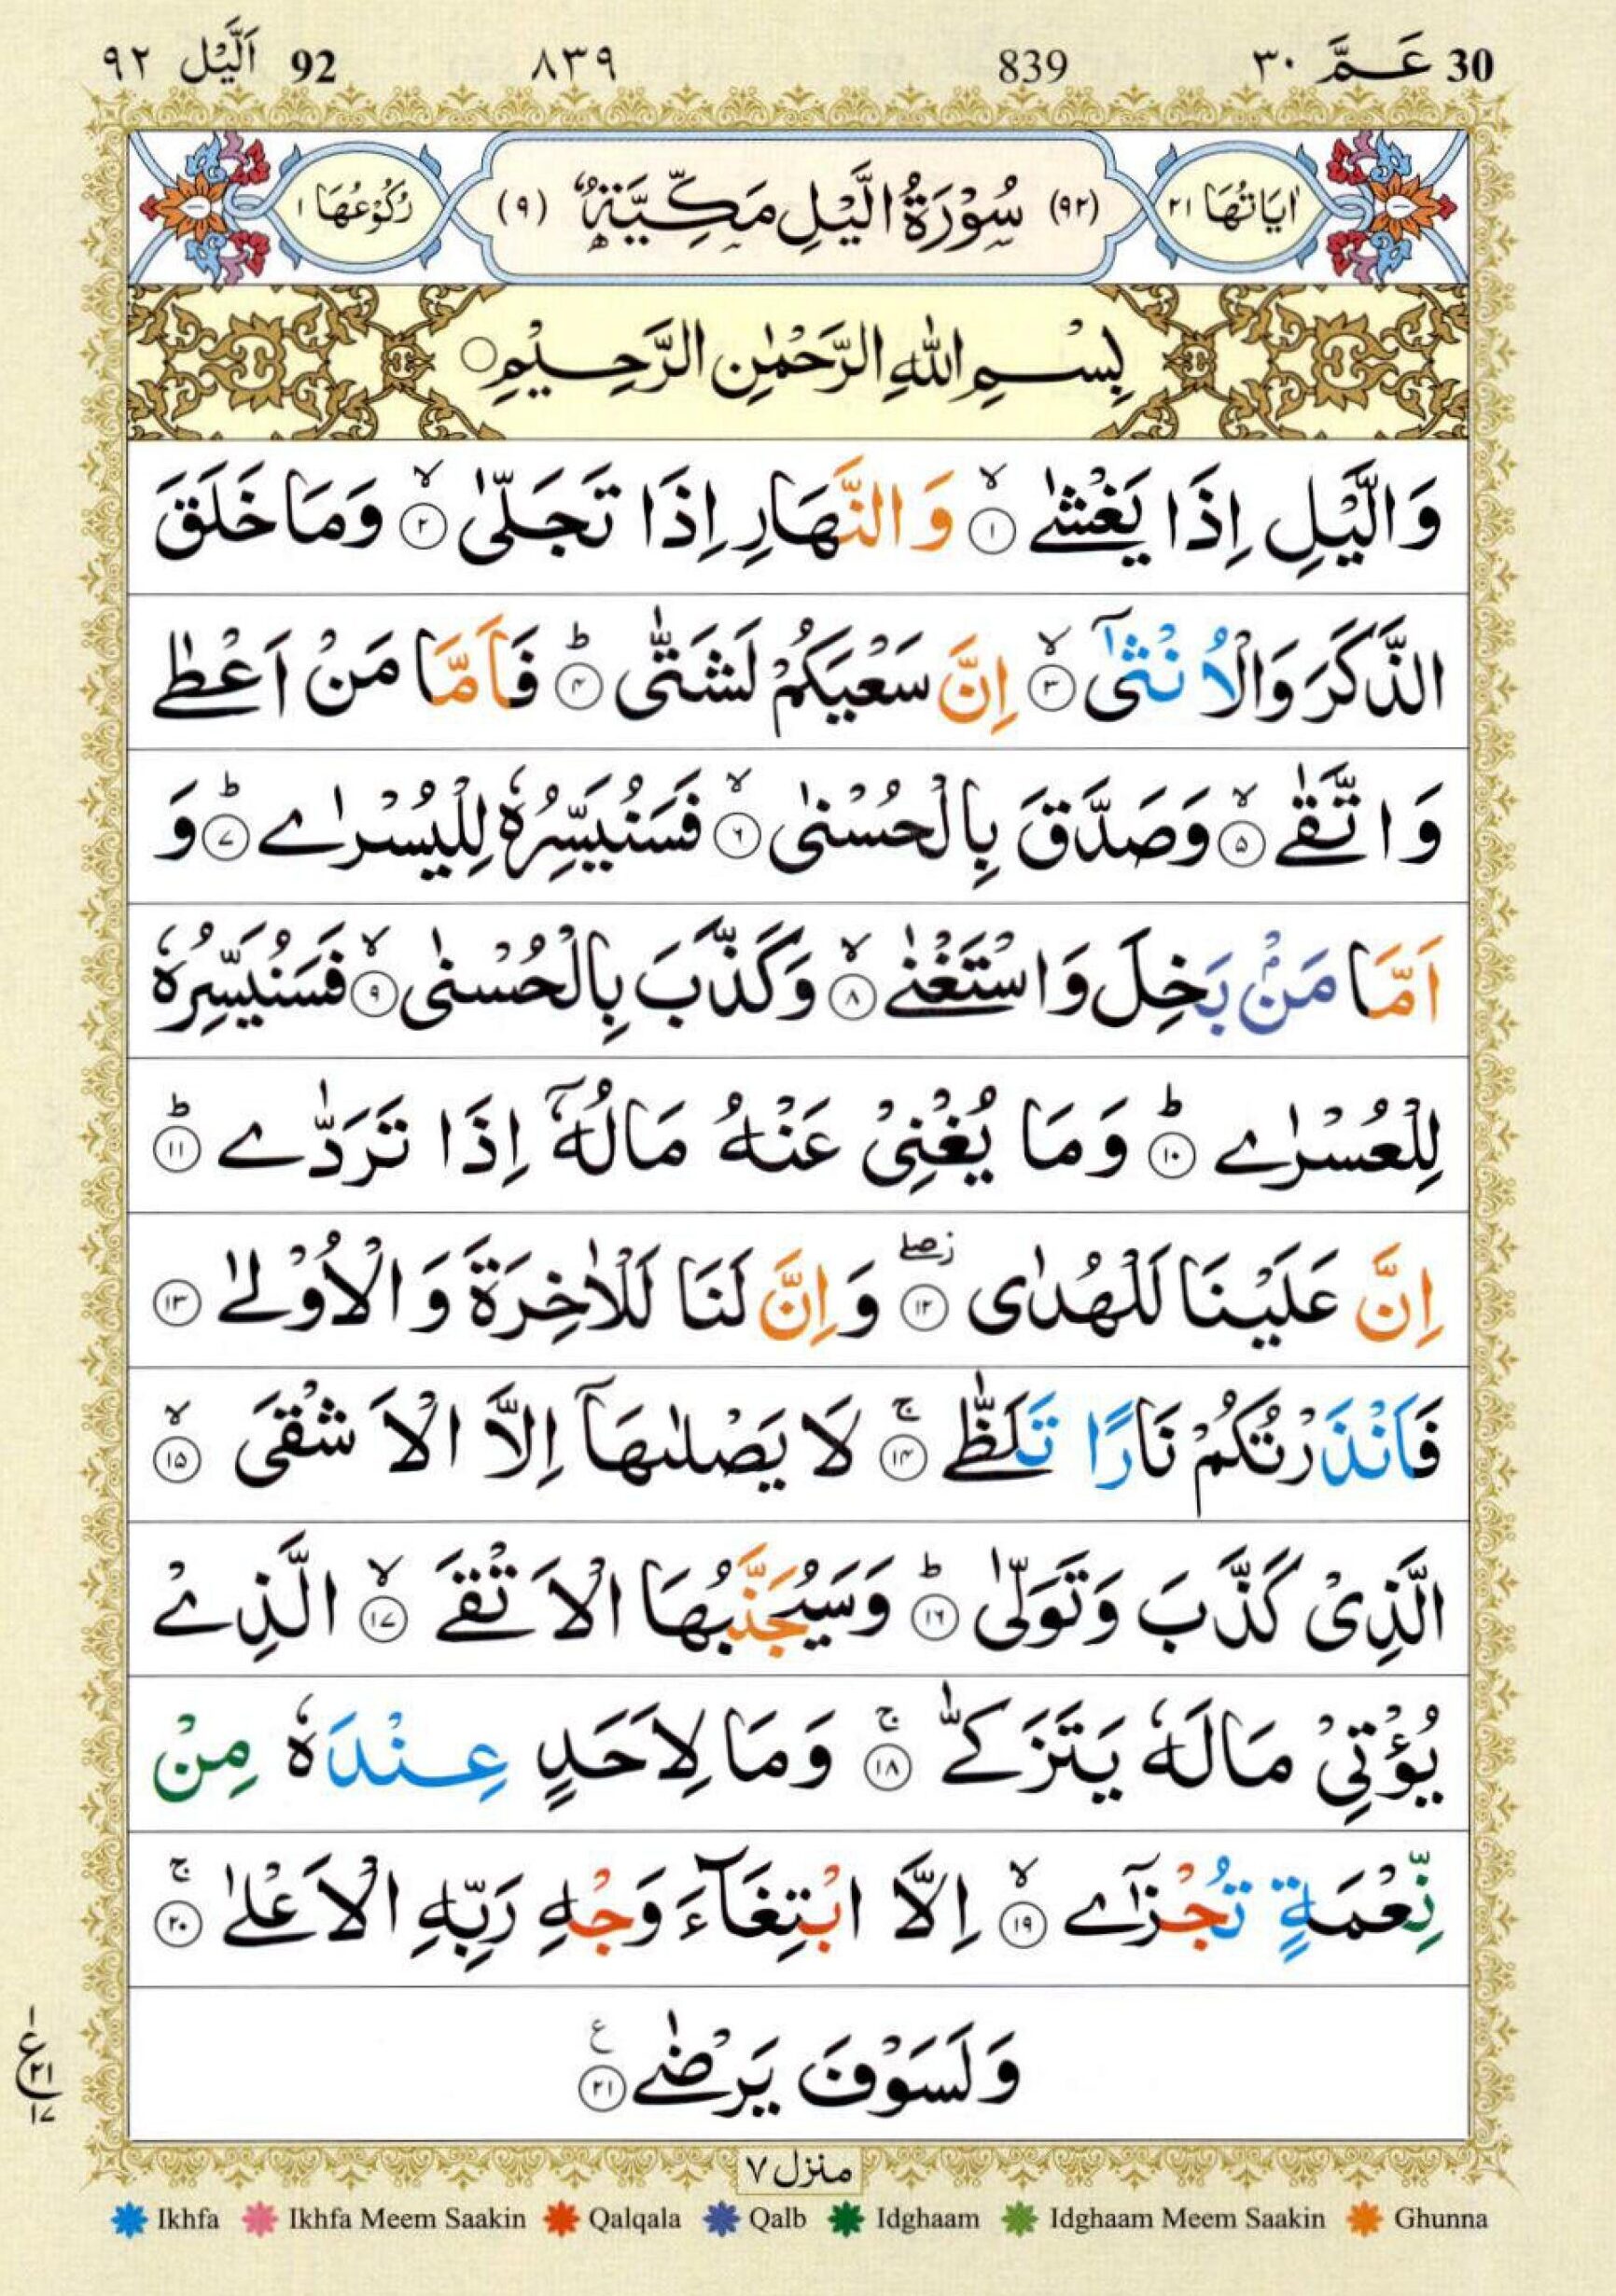 30 عَمَّ ٣٠ 839 ٨٣٩ 92 اَلَّيْل ٩٢
اٰيَاتُهَا ٢١ (٩٢) سُوْرَةُ الَّيْلِ مَكِّيَّةٌ (٩) رُكُوْعُهَا ١
بِسْمِ اللّٰهِ الرَّحْمٰنِ الرَّحِيْمِ ○
وَالَّيْلِ اِذَا يَغْشٰے ۙ﴿١﴾ وَالنَّهَارِ اِذَا تَجَلّٰى ۙ﴿٢﴾ وَمَا خَلَقَ
الذَّكَرَ وَالْاُنْثٰٓى ۙ﴿٣﴾ اِنَّ سَعْيَكُمْ لَشَتّٰى ؕ﴿٤﴾ فَاَمَّا مَنْ اَعْطٰے
وَاتَّقٰے ۙ﴿٥﴾ وَصَدَّقَ بِالْحُسْنٰى ۙ﴿٦﴾ فَسَنُيَسِّرُهٗ لِلْيُسْرٰے ؕ﴿٧﴾ وَ
اَمَّا مَنْۢ بَخِلَ وَاسْتَغْنٰے ۙ﴿٨﴾ وَكَذَّبَ بِالْحُسْنٰى ۙ﴿٩﴾ فَسَنُيَسِّرُهٗ
لِلْعُسْرٰے ؕ﴿١٠﴾ وَمَا يُغْنِىْ عَنْهُ مَالُهٗٓ اِذَا تَرَدّٰے ؕ﴿١١﴾
اِنَّ عَلَيْنَا لَلْهُدٰى ۖ ز﴿١٢﴾ وَاِنَّ لَنَا لَلْاٰخِرَةَ وَالْاُوْلٰے ﴿١٣﴾
فَاَنْذَرْتُكُمْ نَارًا تَلَظّٰے ۚ﴿١٤﴾ لَا يَصْلٰىهَآ اِلَّا الْاَشْقَى ۙ﴿١٥﴾
الَّذِىْ كَذَّبَ وَتَوَلّٰى ؕ﴿١٦﴾ وَسَيُجَنَّبُهَا الْاَتْقَے ۙ﴿١٧﴾ الَّذِےْ
يُؤْتِىْ مَالَهٗ يَتَزَكّٰے ۚ﴿١٨﴾ وَمَا لِاَحَدٍ عِنْدَهٗ مِنْ
نِّعْمَةٍ تُجْزٰٓے ۙ﴿١٩﴾ اِلَّا ابْتِغَآءَ وَجْهِ رَبِّهِ الْاَعْلٰے ۚ﴿٢٠﴾
وَلَسَوْفَ يَرْضٰے ﴿٢١﴾ ع
١ ع ٢١ ١٧
منزل ٧
Ikhfa Ikhfa Meem Saakin Qalqala Qalb Idghaam Idghaam Meem Saakin Ghunna